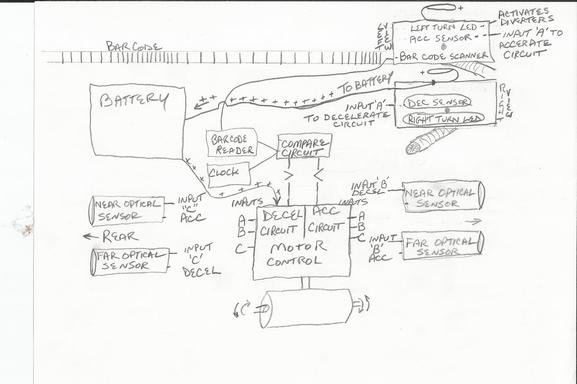 BARCODE
LEFT VIEW
LEFT TURN LED
ACC SENSOR
BAR CODE SCANNER
ACTIVATES
DIVERTERS
INPUT 'A' TO
ACCERATE
CIRCUIT
+
TO BATTERY
+
BATTERY
INPUT 'A'
TO DECELERATE
CIRCUIT
DEC SENSOR
RIGHT TURN LED
RIGHT VIEW
BARCODE
READER
COMPARE
CIRCUIT
CLOCK
NEAR OPTICAL
SENSOR
INPUT
"C"
ACC
INPUTS
INPUT 'B'
DECEL
INPUTS
NEAR OPTICAL
SENSOR
DECEL
CIRCUIT
ACC
CIRCUIT
A
B
C
A
B
C
MOTOR
CONTROL
← REAR
FAR OPTICAL
SENSOR
INPUT
'C'
DECEL
INPUT
'B'
ACC
FAR OPTICAL
SENSOR